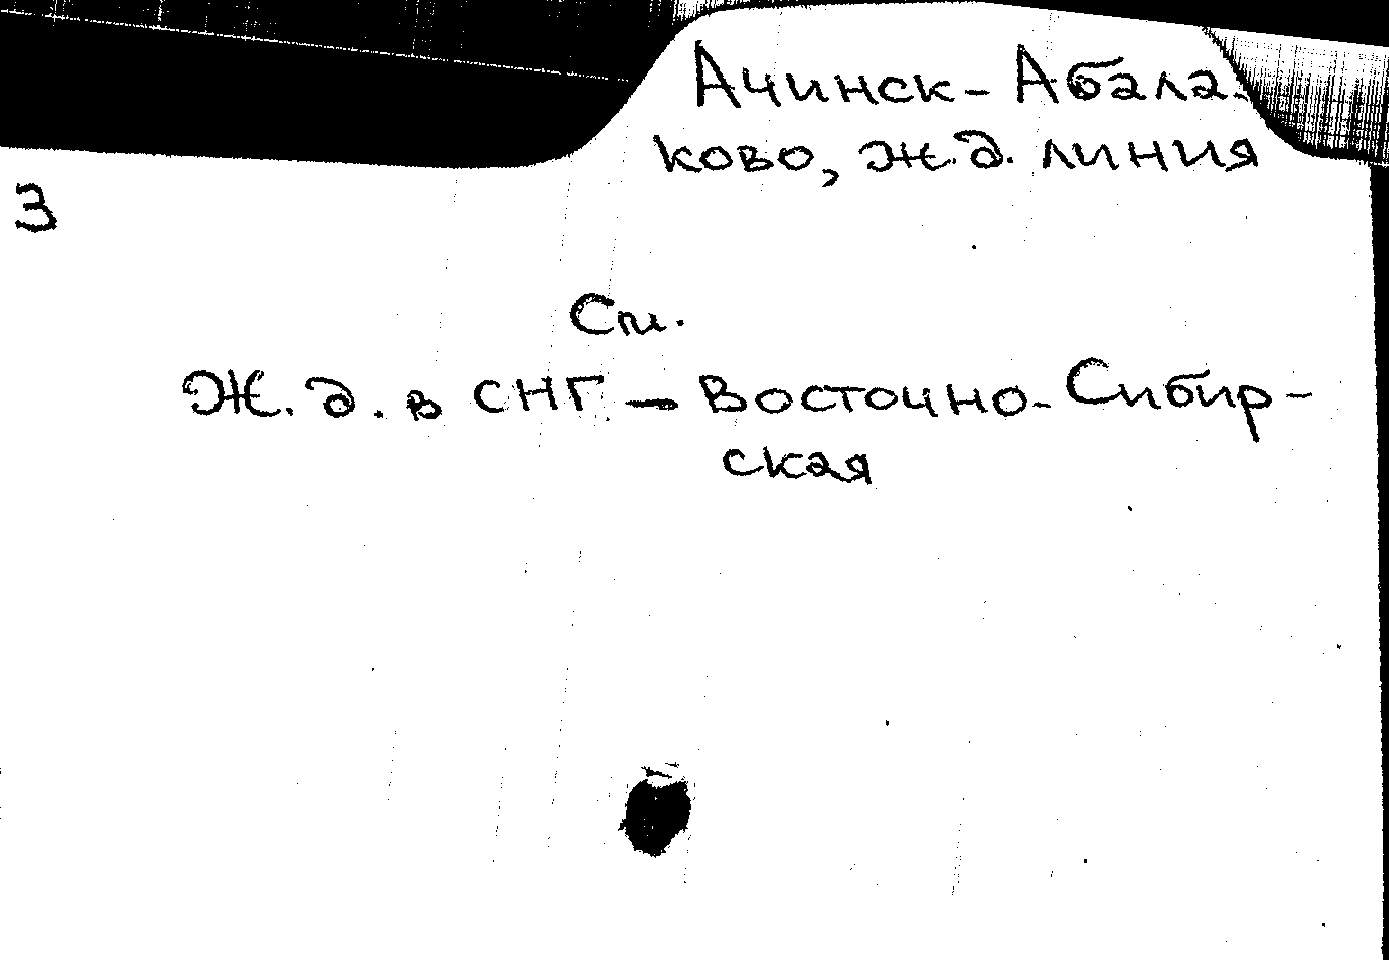 Ачинск-Абала-
ково, ж.д. линия
3
См.
Ж.д. в СНГ — Восточно-Сибир-
ская